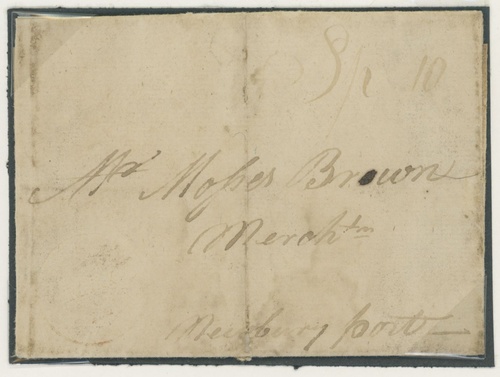 10
Mr Moses Brown
Merchtm
Newbury port